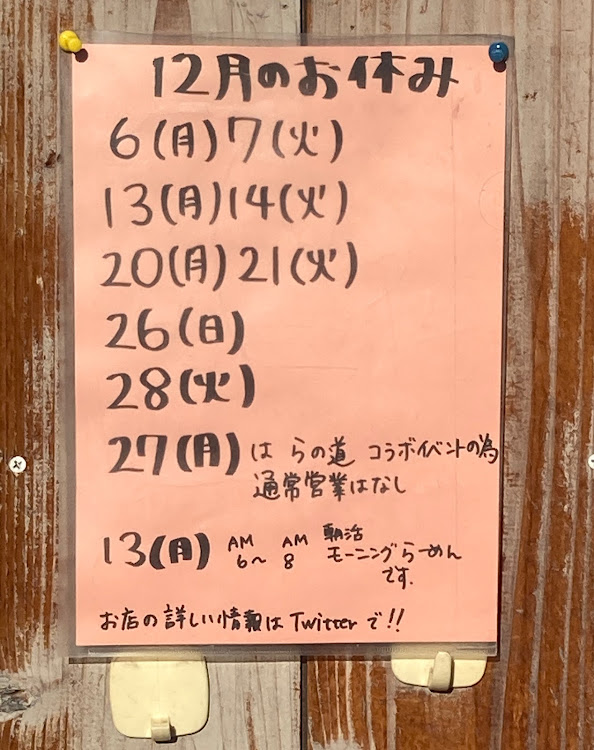 12月のお休み
6(月)7(火)
13(月)14(火)
20(月)21(火)
26(日)
28(火)
27(月)は らの道 コラボイベントの為
通常営業はなし
13(月) AM 6〜 AM 8 朝活
モーニングらーめん
です.
お店の詳しい情報はTwitterで!!